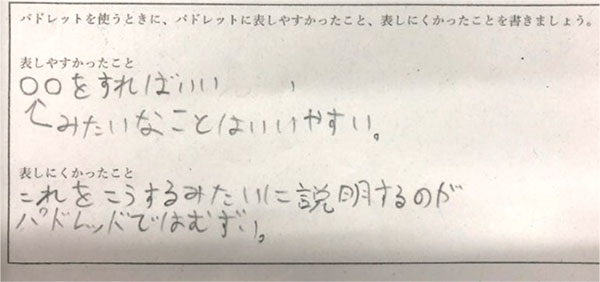 パドレットを使うときに、パドレットに表しやすかったこと、表しにくかったことを書きましょう。
表しやすかったこと
○○をすればいい
↑みたいなことはいいやすい。
表しにくかったこと
これをこうするみたいに説明するのが
パドレッドではむずい。